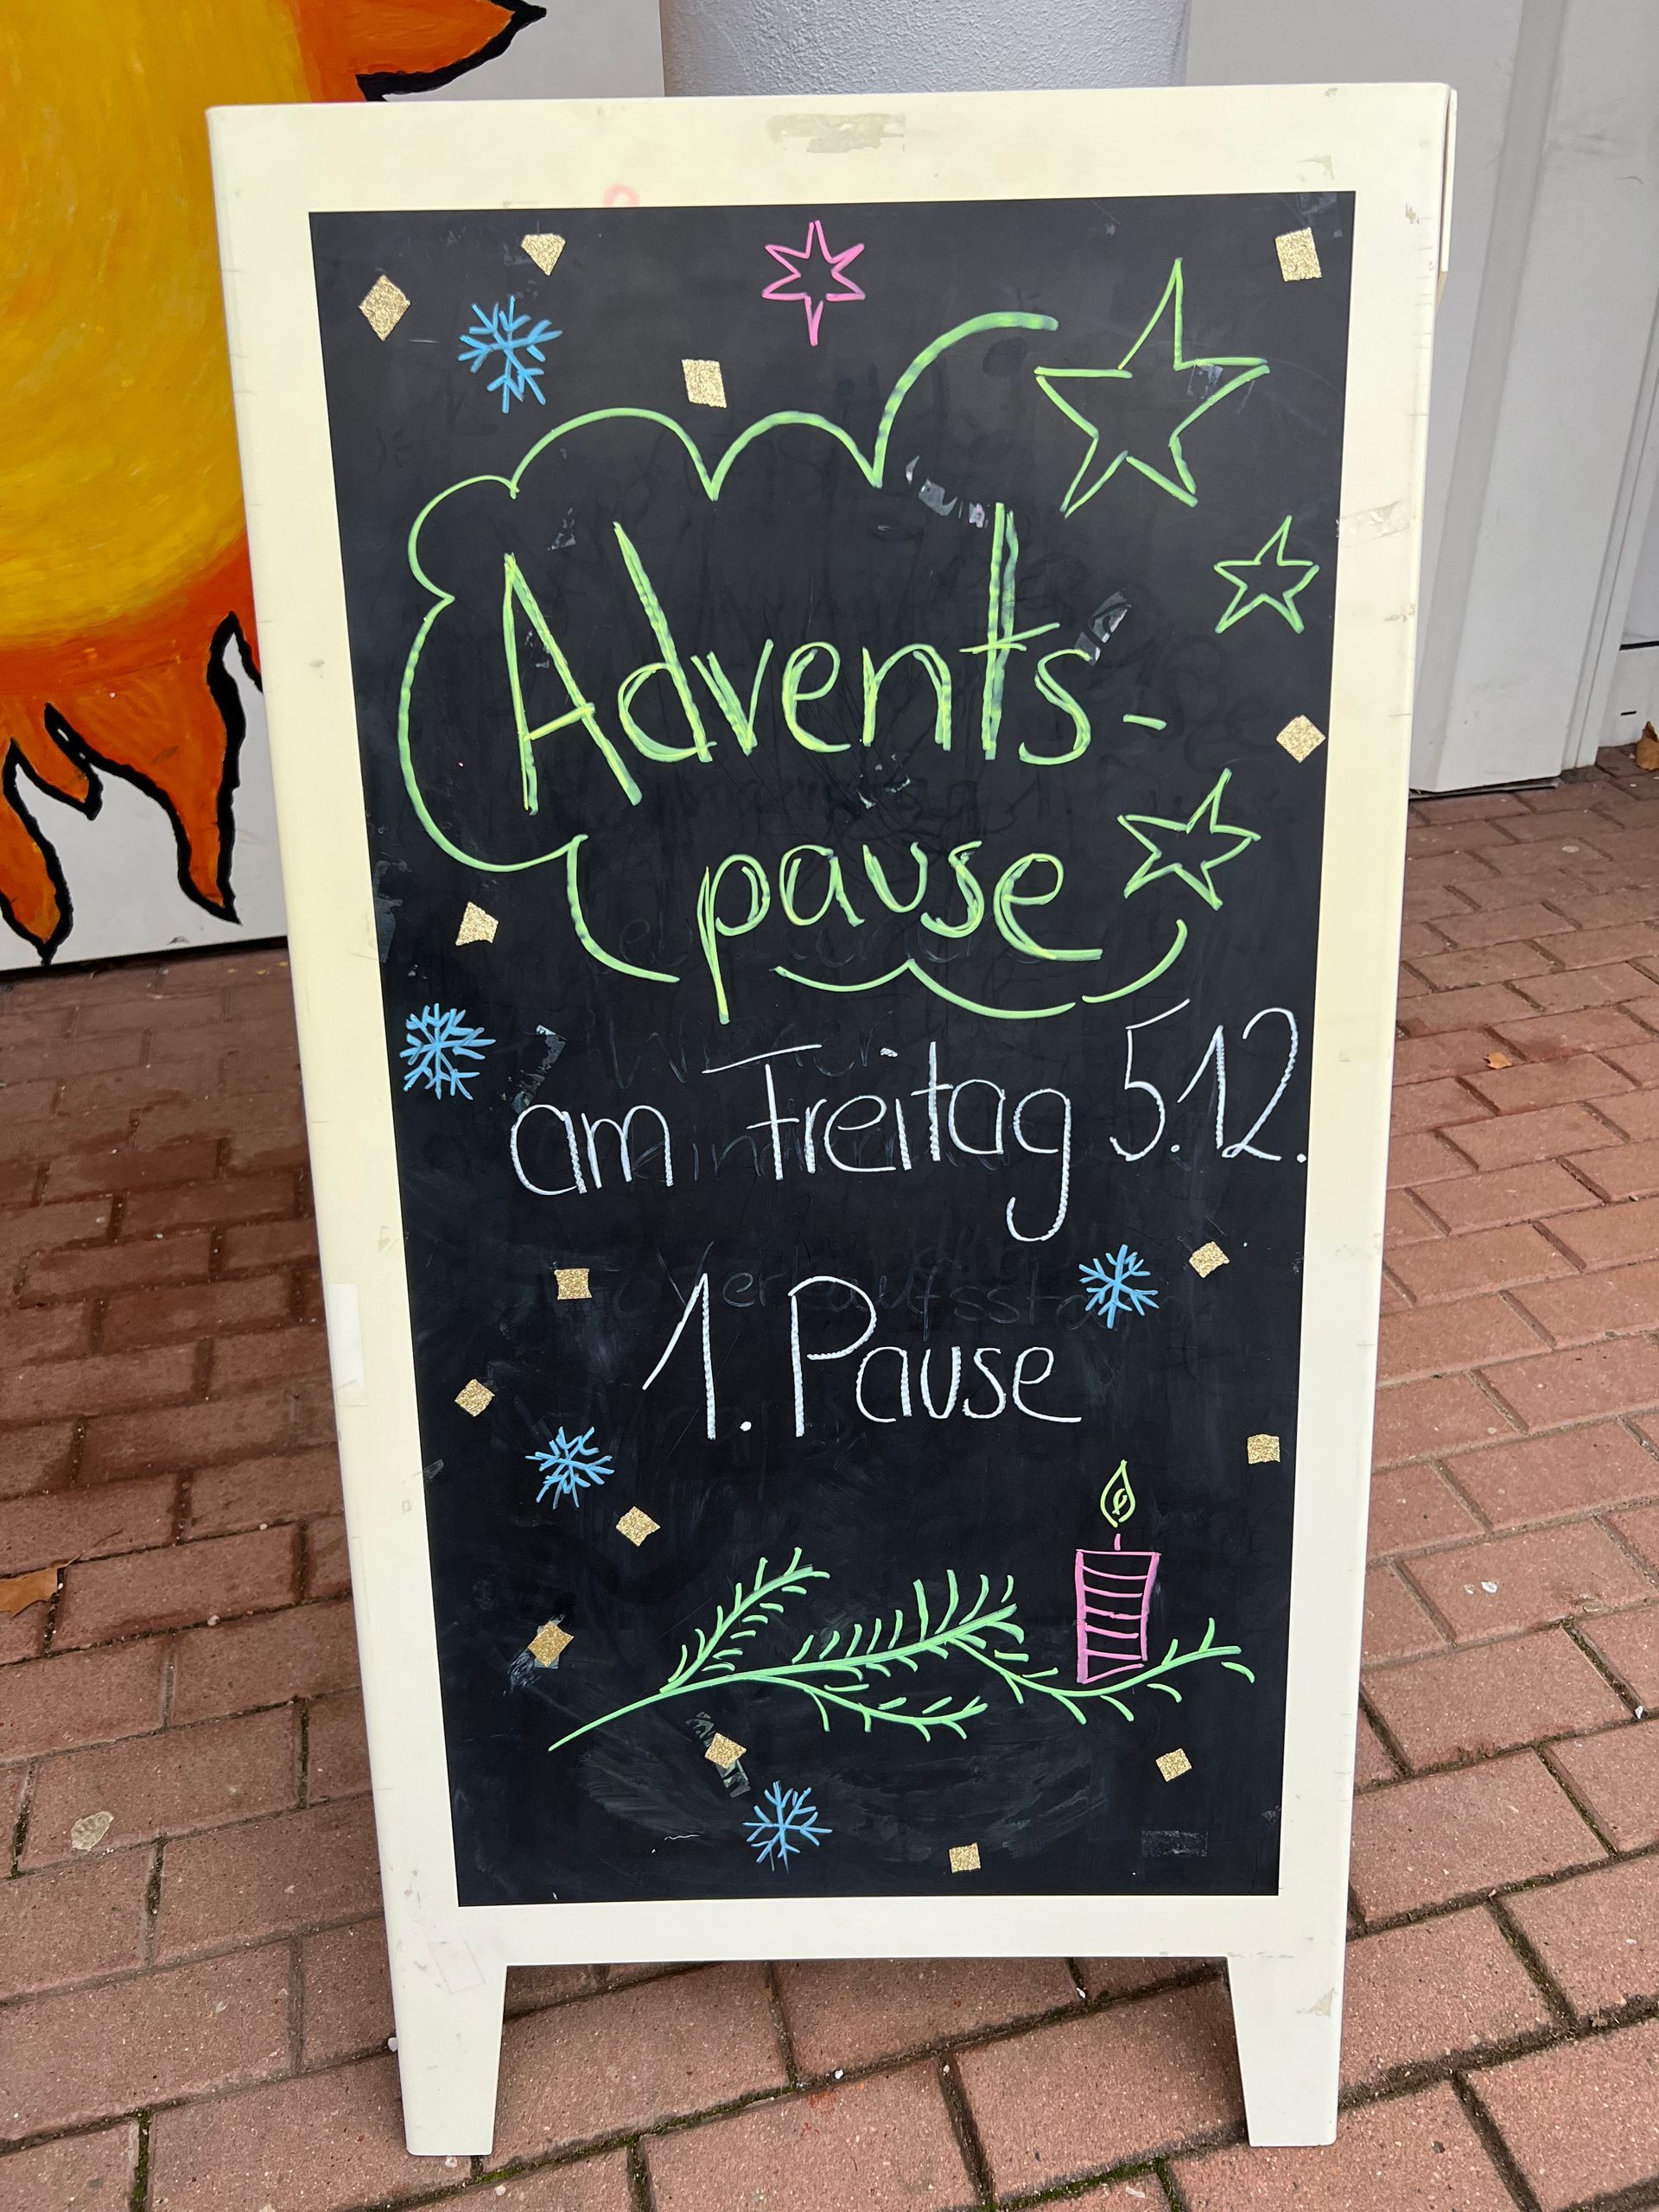 Advents-
pause
am Freitag 5.12.
1. Pause